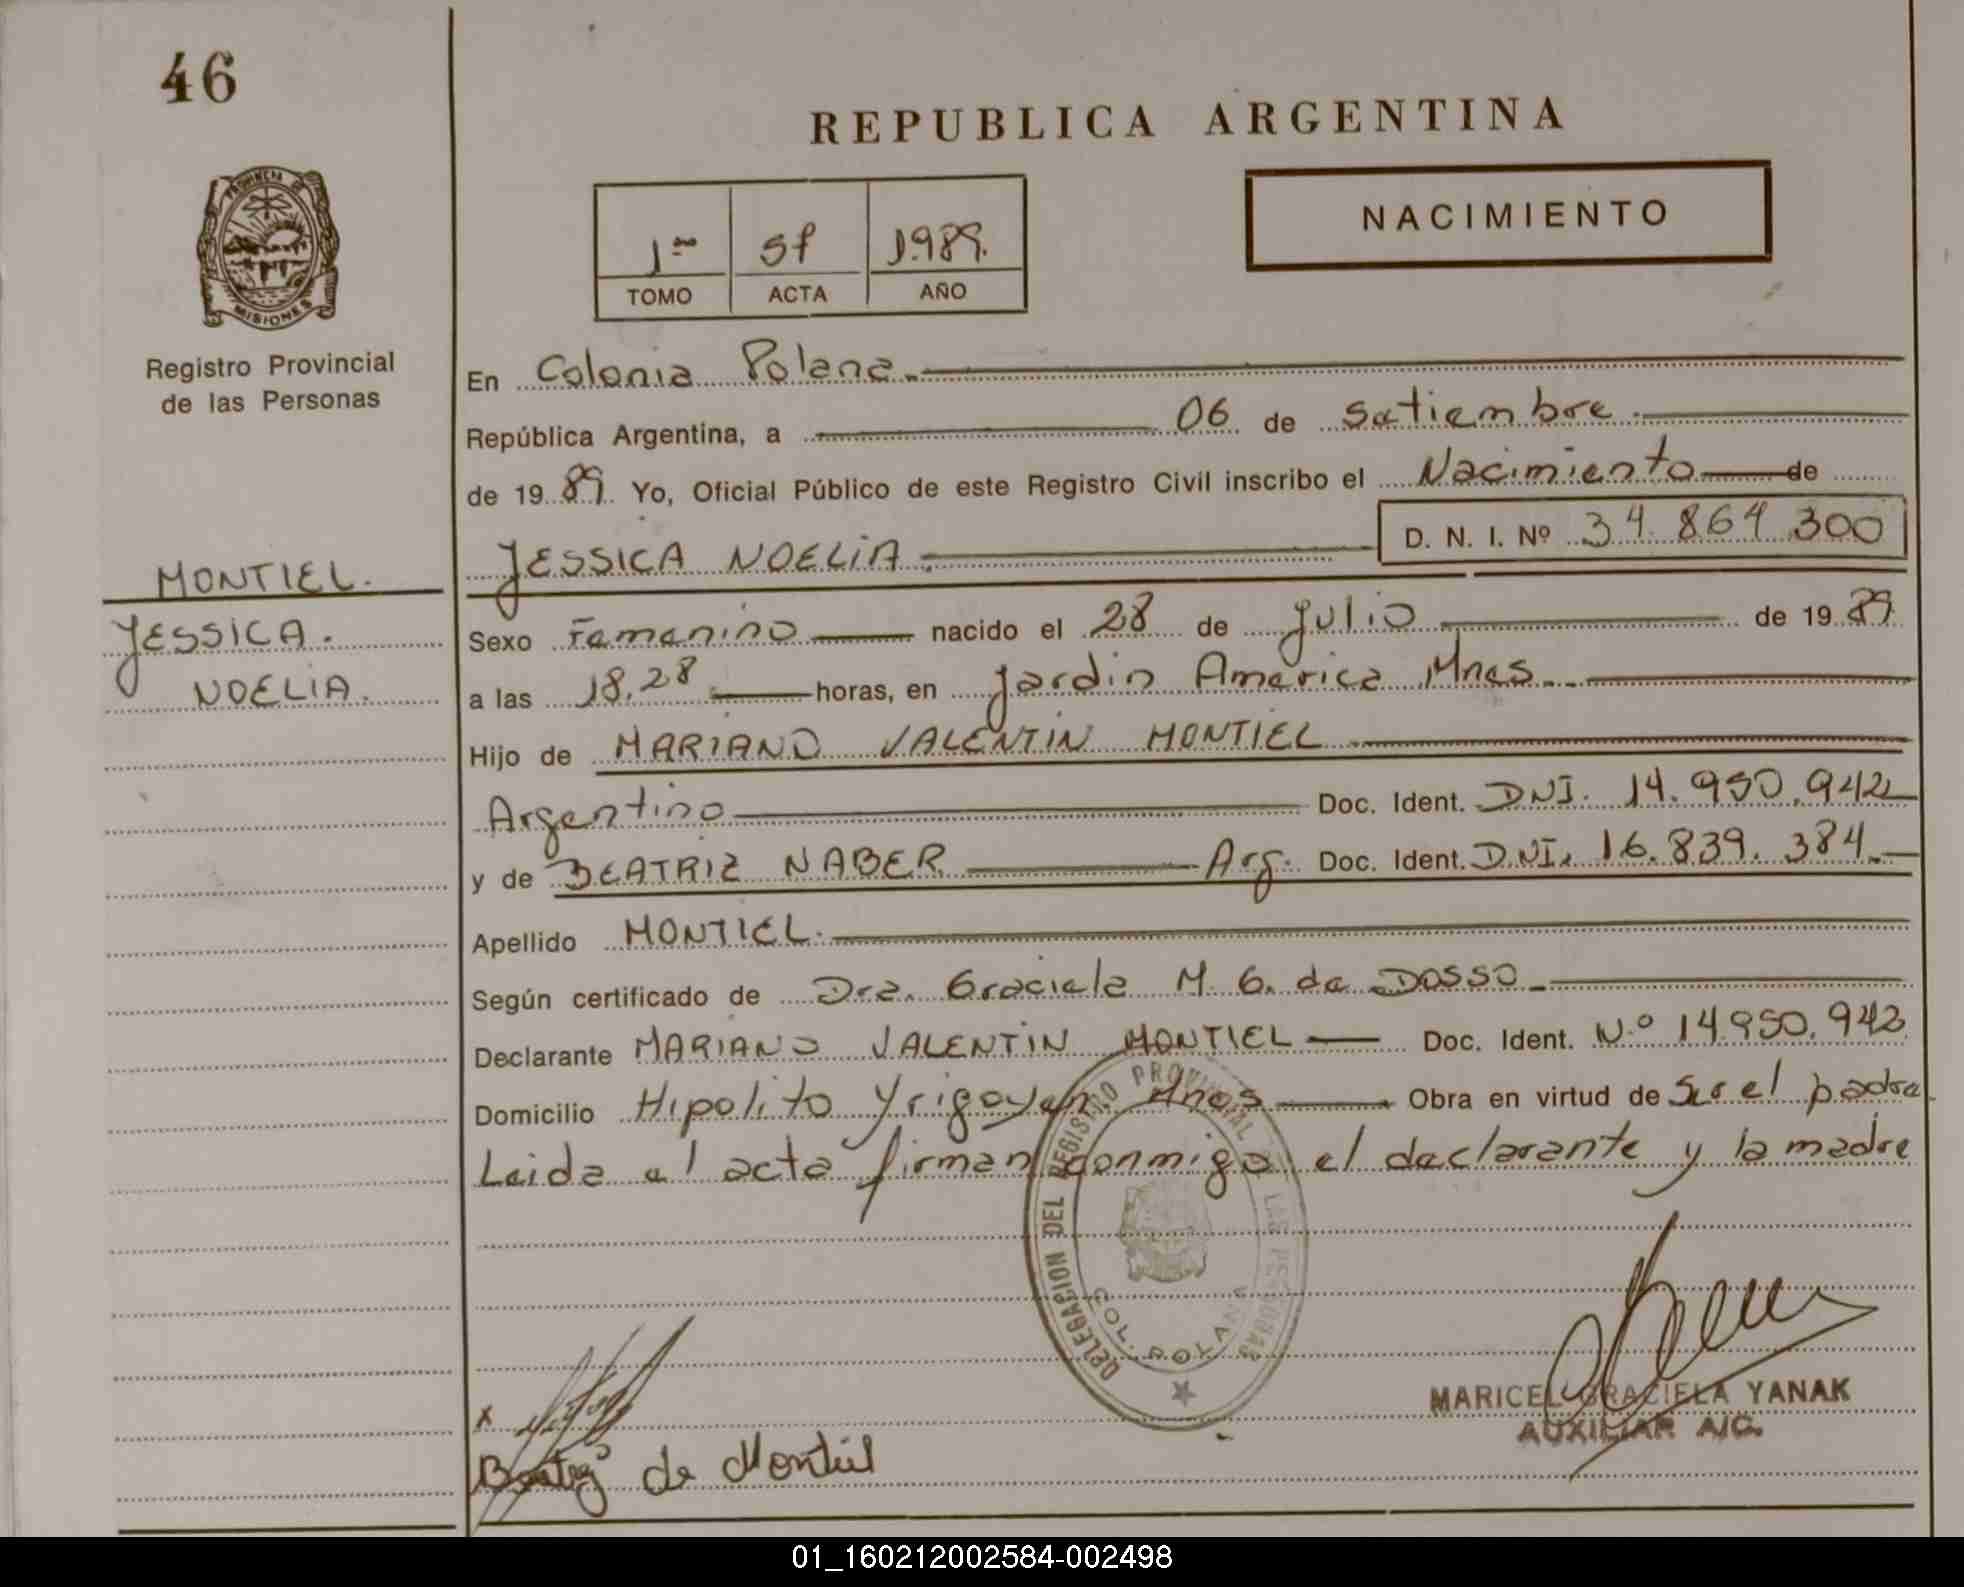 46
REPUBLICA ARGENTINA
NACIMIENTO
1989.
TOMO ACTA AÑO
PROVINCIA DE
MISIONES
Registro Provincial
de las Personas
MONTIEL.
JESSICA.
NOELIA.
En Colonia Polana.
República Argentina, a 06 de Satiembre.
de 1989. Yo, Oficial Público de este Registro Civil inscribo el Nacimiento de
D. N. I. Nº 34.864.300
JESSICA NOELIA.
Sexo Femenino nacido el 28 de Julio de 1989.
a las 18.28 horas, en Jardin America Mnes.
Hijo de MARIANO VALENTIN MONTIEL
Argentino Doc. Ident. DNI. 14.950.942
y de BEATRIZ NABER Arg. Doc. Ident. DNI. 16.839.384.
Apellido MONTIEL.
Según certificado de Dra. Graciela M. G. de DOSSO
Declarante MARIANO VALENTIN MONTIEL Doc. Ident. N.º 14.950.942
Domicilio Hipolito Yrigoyen Mnes Obra en virtud de Ser el padre
Leida el acta firman conmigo el declarante y la madre
DELEGACION DEL REGISTRO PROVINCIAL DE LAS PERSONAS
COL. POLANA
MARICEL GRACIELA YANAK
AUXILIAR A/C.
x
Beatriz de Montiel
01_160212002584-002498